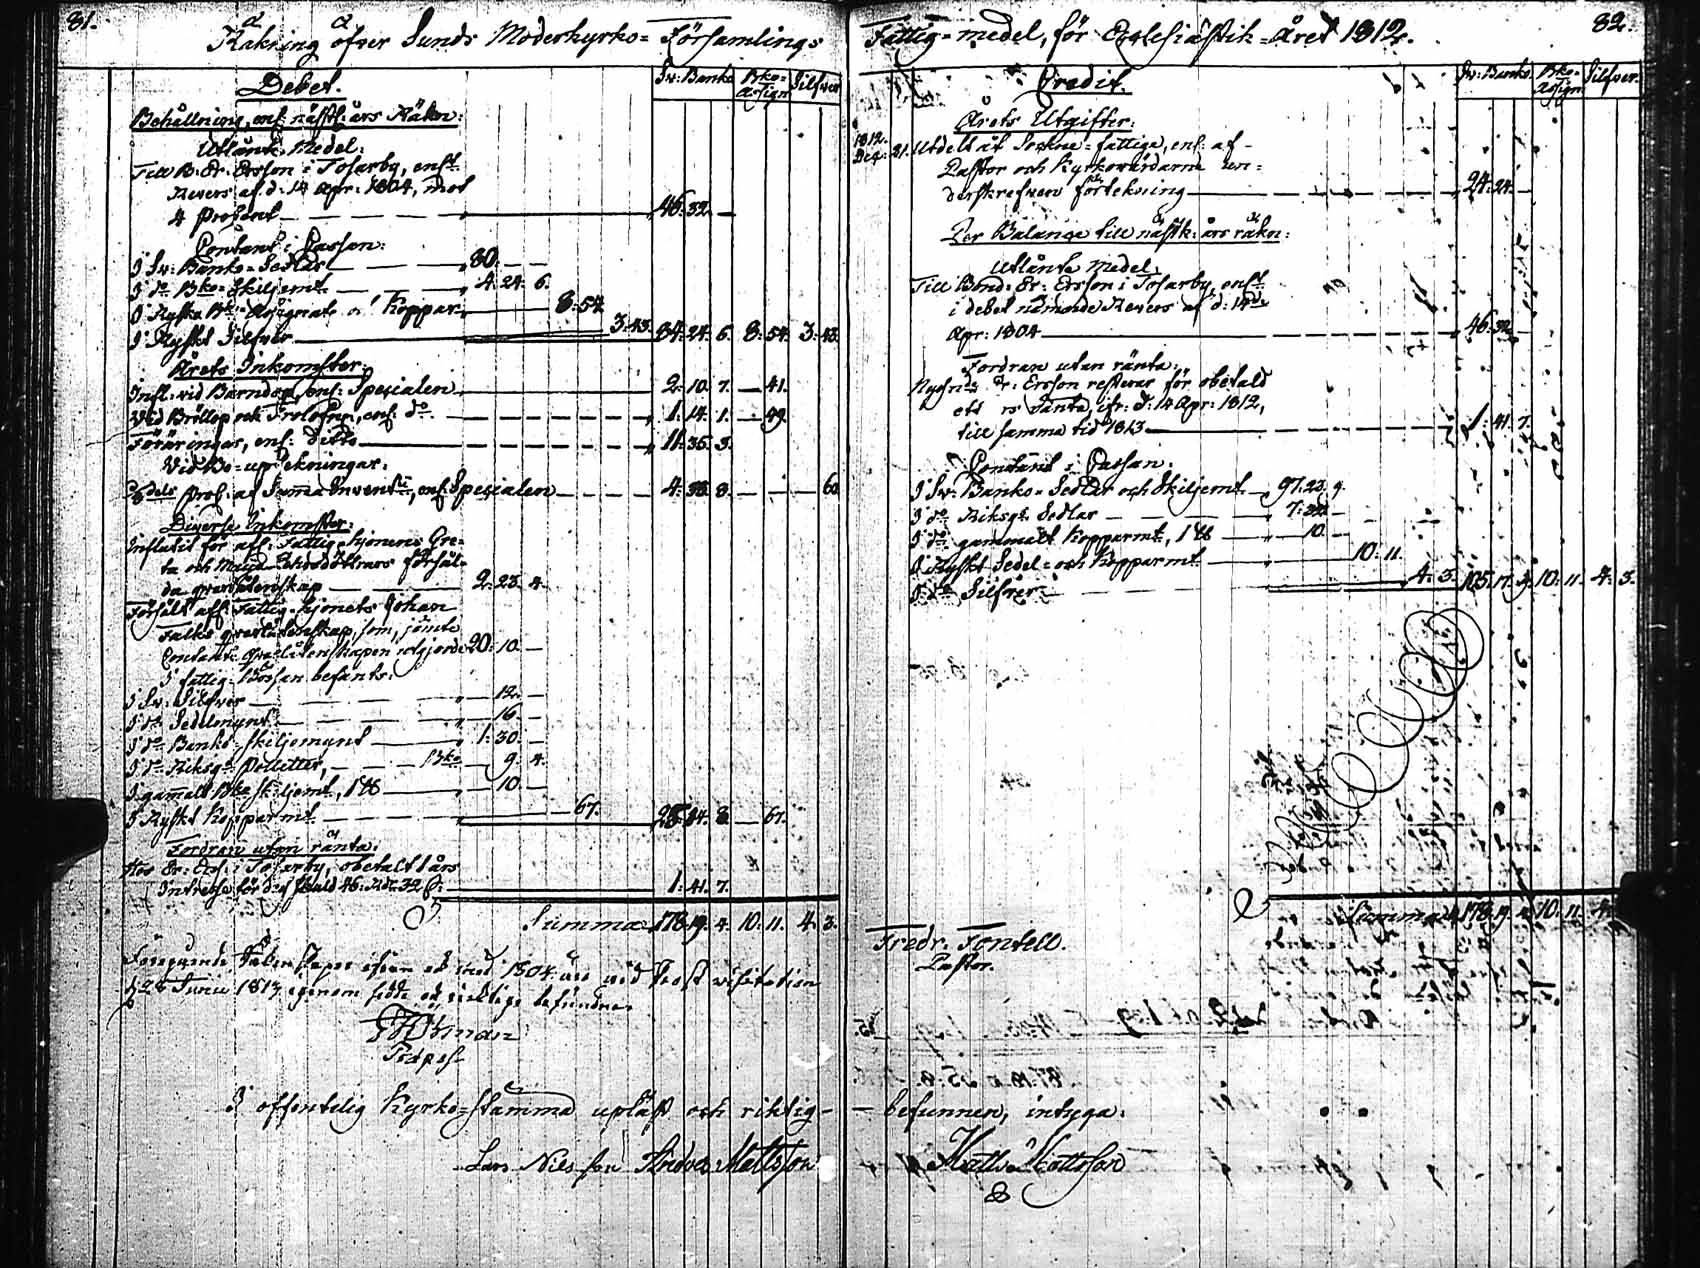 81.
Räkning öfver Sunds Moderkyrko=Församlings
Debet.
Sv: Banko Bko= Assign Silfver
Behållning, enl: näst: års Räkn:
Utlånte Medel:
Till B: Er: Ersson i Tosarby, enl:t
Revers af d: 14 Apr: 1804, mot
4 Procent 46: 32. —
Contant i Cassan:
I Sv: Banko=Sedlar 80. — —
I do Bko=Skiljemt 4: 24: 6.
I Ryska Bko=Assignat: o Koppar 8: 54.
I Ryskt Silfver 3: 43. 84: 24: 6. 8: 54. 3: 43.
Årets Inkomster:
Infl: vid Barndop, enl: Specialen 2: 10. 7. — 41.
Vid Bröllop och enl: do 1. 14. 1. — 49.
Föräringar, enl: ditto 11: 35. 3.
Vid Bo=uptekningar:
Proc: af Summa Invent: enl: Specialen — 60.
Diverse Inkomster:
Influtit för afl: Fattig=hjonens Gre=
ta och försål=
da qvarlåtenskap 2: 23. 4.
Försålt afl: Fattig=hjonets Johan
Falks qvarlåtenskap, som, jämte
Contante qvarlåtenskapen utgjorde 20: 10. —
I fattig=Bössan befants:
I Sv: Silfver 12. —
I do Sedelmynt 16. —
I do Banko Skiljemynt 1: 30. —
I do Riksg: Polletter, Bko 9. 4.
I gamalt Bko Skiljemt, 1 ℔ 10. —
I Ryskt Kopparmt 67. — 67.
Fordran utan ränta:
Hos Er: Ers: i Tosarby, obetalt 1 års
Intresse för dess skuld 46: Rd: 32 ß: 1: 41. 7.
Summa 178. 19. 4. 10: 11. 4. 3.
Föregående Räkenskaper ifrån och med 1804 äro vid Prost visitation
d 28 Junii 1813 igenom sedde och riktige befundne.
I offentelig Kyrko=stämma upläst och riktig-
Lars Nilsson Andves Mattsson
82.
Fattig=medel, för Ecclesiastik=Året 1812.
Credit.
Sv: Banko. Bko= Assign Silfver.
Årets Utgifter:
1812.
Dec: 31. Utdelt åt Sockne=fattige, enl: af
Pastor och Kyrkovärdarne un=
derskrefven förtekning 24: 24. —
Per Balance till nästk: års räkn:
Utlånte Medel:
Till Bond: Er: Ersson i Tosarby, enl:t
i debet nämnde Revers af d: 14de
Apr: 1804 46: 32. —
Fordran utan ränta:
Nyss Er: Ersson resterar för obetald
ett rs Ränta, ifr: d: 14 Apr: 1812,
till samma tid 1813 1: 41. 7.
Contant i Cassan:
I Sv: Banko=Sedlar och Skiljemt 97. 23. 9.
I do Riksgs Sedlar 7:
I do gammalt Kopparmt, 1 ℔ 10. —
I Ryskt Sedel=och Kopparmt 10: 11.
I do Silfver 4: 3. 105. 17. 9. 10: 11. 4: 3.
Summa 178. 19. 4. 10: 11. 4.
Fredr. Fontell.
Pastor.
— befunnen, intyga:
Matts Mattsson